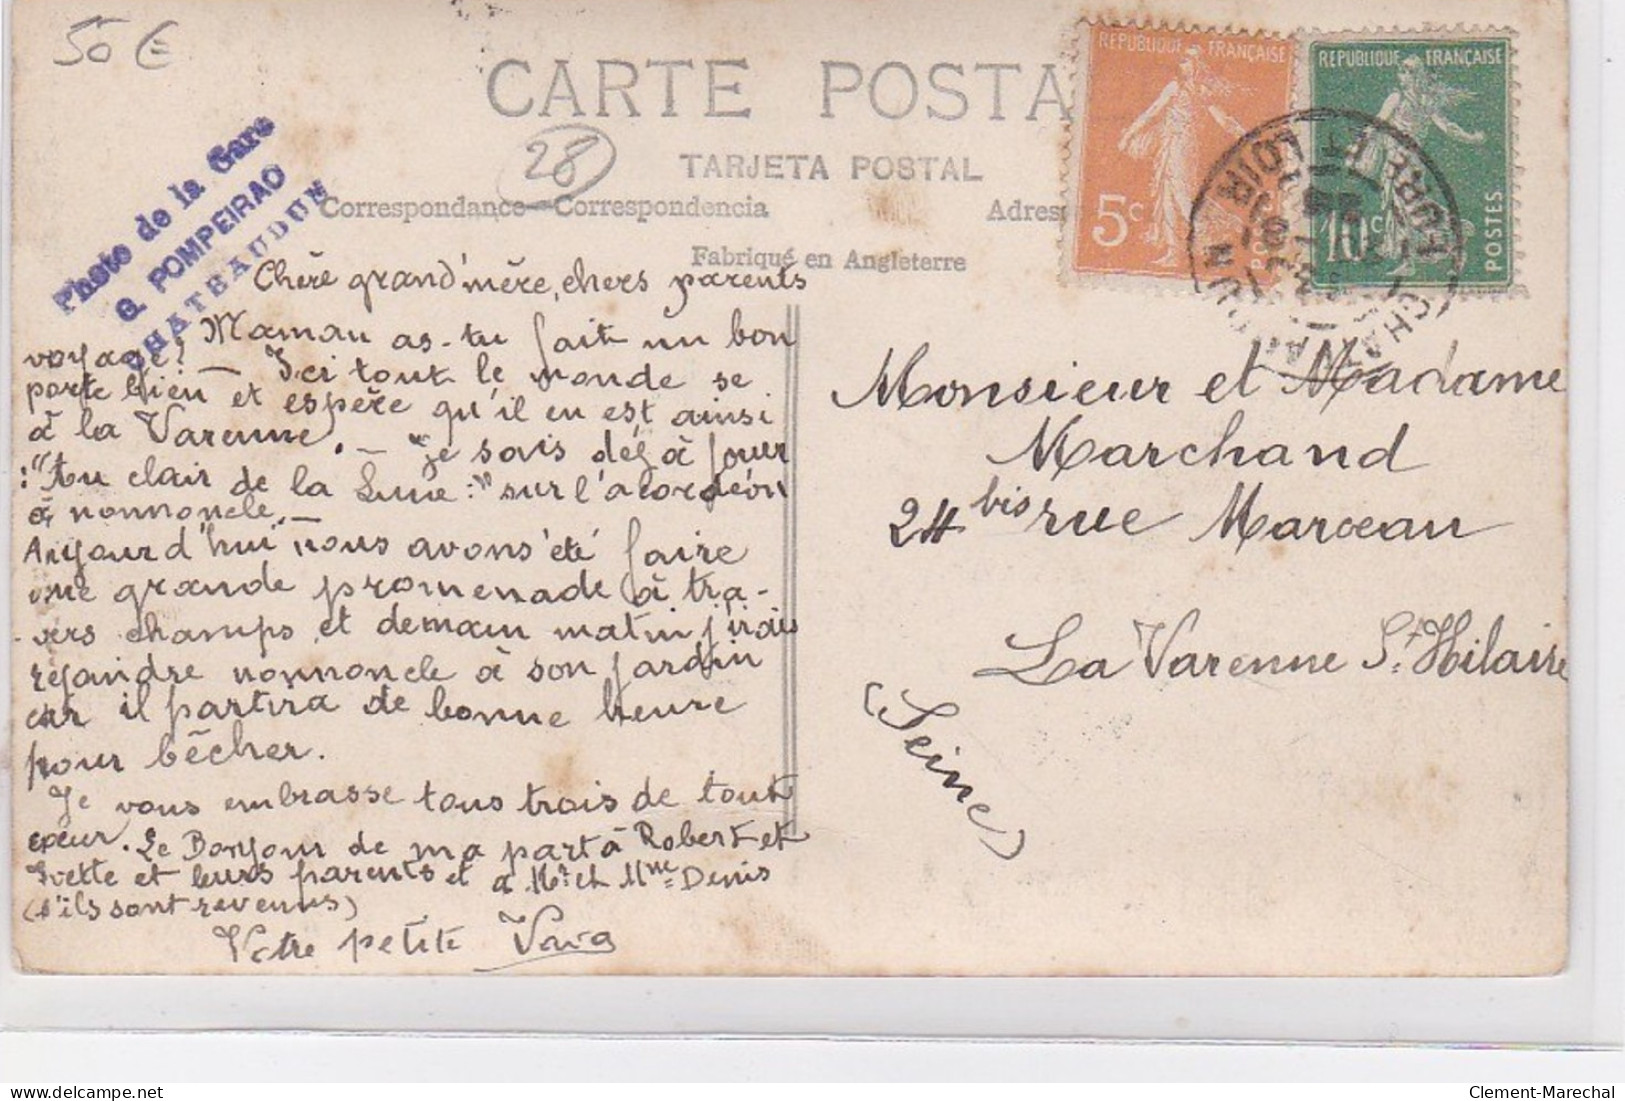 50 €
CARTE POSTA
28
TARJETA POSTAL
Correspondance - Correspondencia
Adres
Fabriqué en Angleterre
Photo de la Gare
G. POMPEIRAO
CHATEAUDUN
REPUBLIQUE FRANÇAISE
5c
REPUBLIQUE FRANÇAISE
10c
POSTES
CHATEAUDUN
EURE ET LOIR
Chère grand'mère, chers parents
Maman as-tu fait un bon
voyage? — Ici tout le monde se
porte bien et espère qu'il en est ainsi
à la Varenne. — Je sais déjà jouer
: "Au clair de la Lune :" sur l'acordéon
à nonnoncle. —
Aujourd'hui nous avons été faire
une grande promenade à tra-
-vers champs et demain matin j'irais
rejoindre nonnoncle à son jardin
car il partira de bonne heure
pour bêcher.
Je vous embrasse tous trois de tout
cœur. Le Bonjour de ma part à Robert et
Yvette et leurs parents et à Mr. et Mme Denis
(s'ils sont revenus)
Votre petite
Monsieur et Madame
Marchand
24 bis rue Marceau
La Varenne St. Hilaire
(Seine)
Clement-Marechal